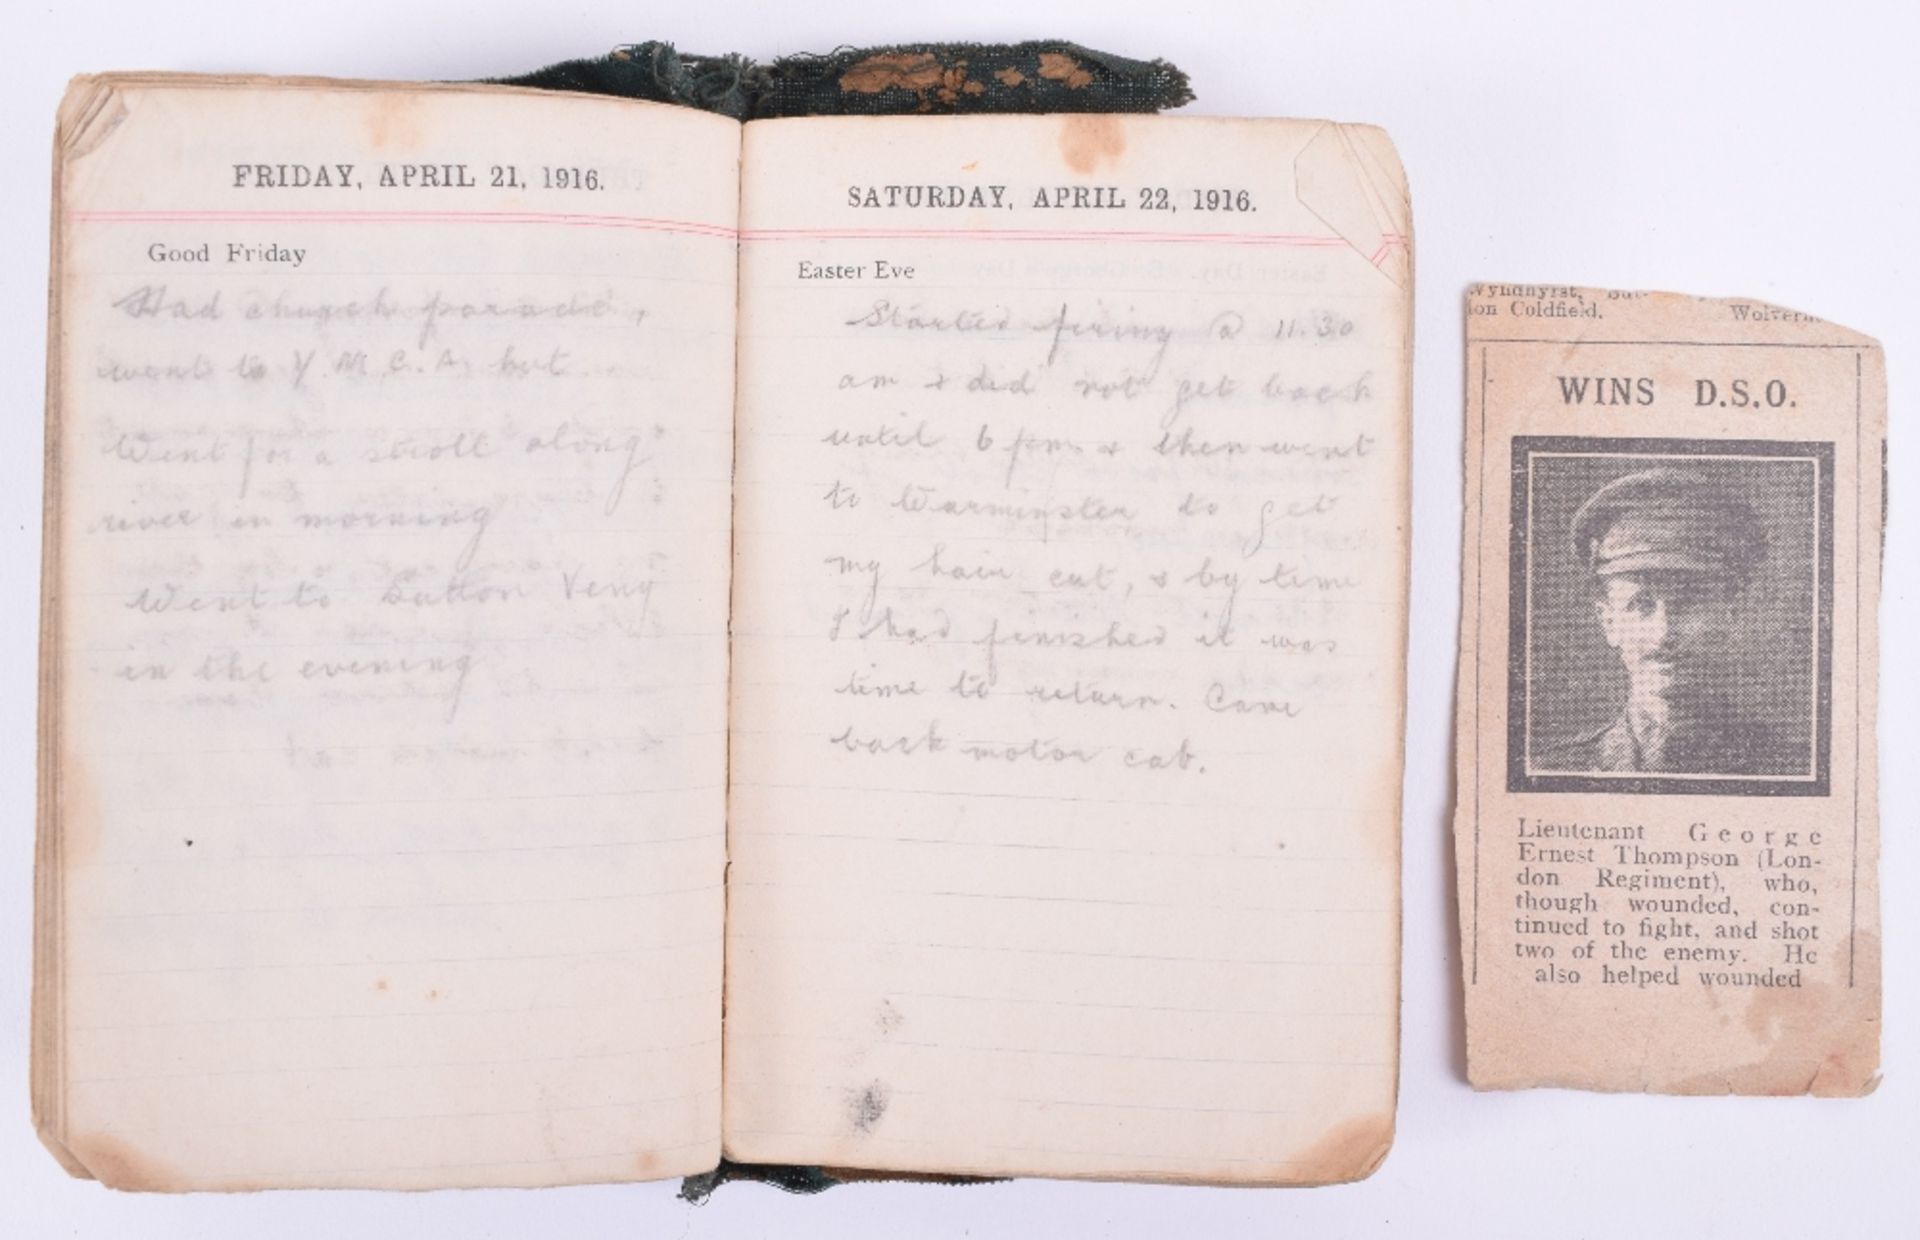 FRIDAY, APRIL 21, 1916.
Good Friday
Had church parade,
went to Y.M.C.A. hut
Went for a stroll along
river in morning
Went to Sutton Veny
in the evening
SATURDAY, APRIL 22, 1916.
Easter Eve
Started firing @ 11.30
am & did not get back
until 6 pm & then went
to Warminster to get
my hair cut, & by time
I had finished it was
time to return. Came
back motor cab.
Wyndhyrst,
ton Coldfield.
WINS D.S.O.
Lieutenant George
Ernest Thompson (Lon-
don Regiment), who,
though wounded, con-
tinued to fight, and shot
two of the enemy. He
also helped wounded